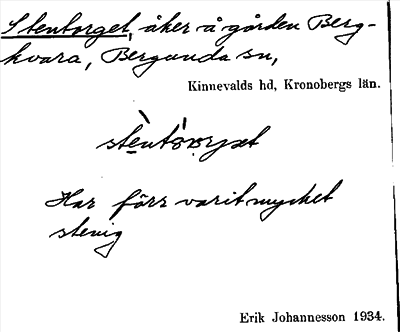 Stentorget, åker å gården Berg-
kvara, Bergunda sn,
Kinnevalds hd, Kronobergs län.
Har förr varit mycket
stenig
Erik Johannesson 1934.